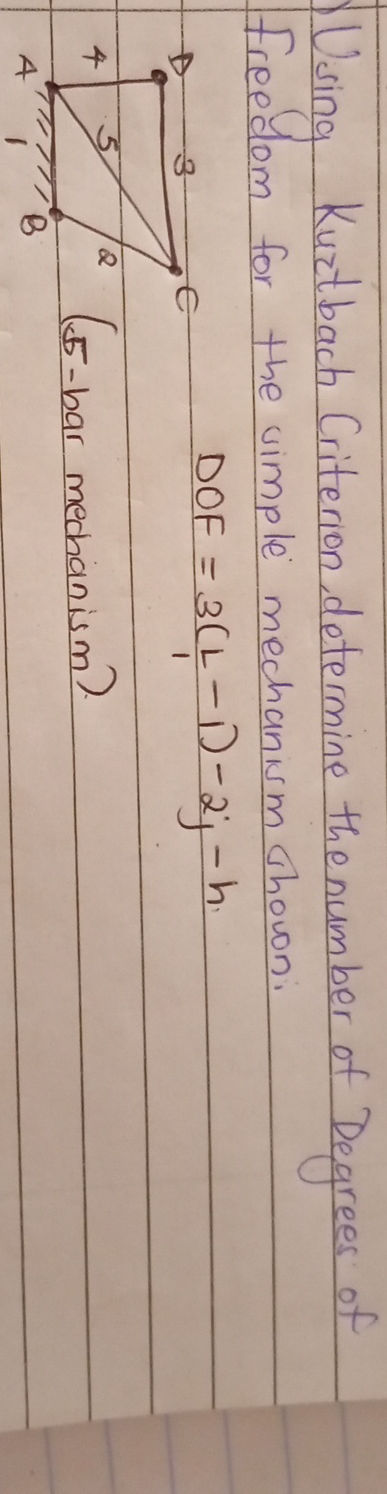 Using Kuztbach Criterion, determine the number of Degrees of
freedom for the simple mechanism shown:
D 3 C
DOF = 3(L - 1) - 2j - h.
1
4 5 2
(5-bar mechanism).
A 1 B